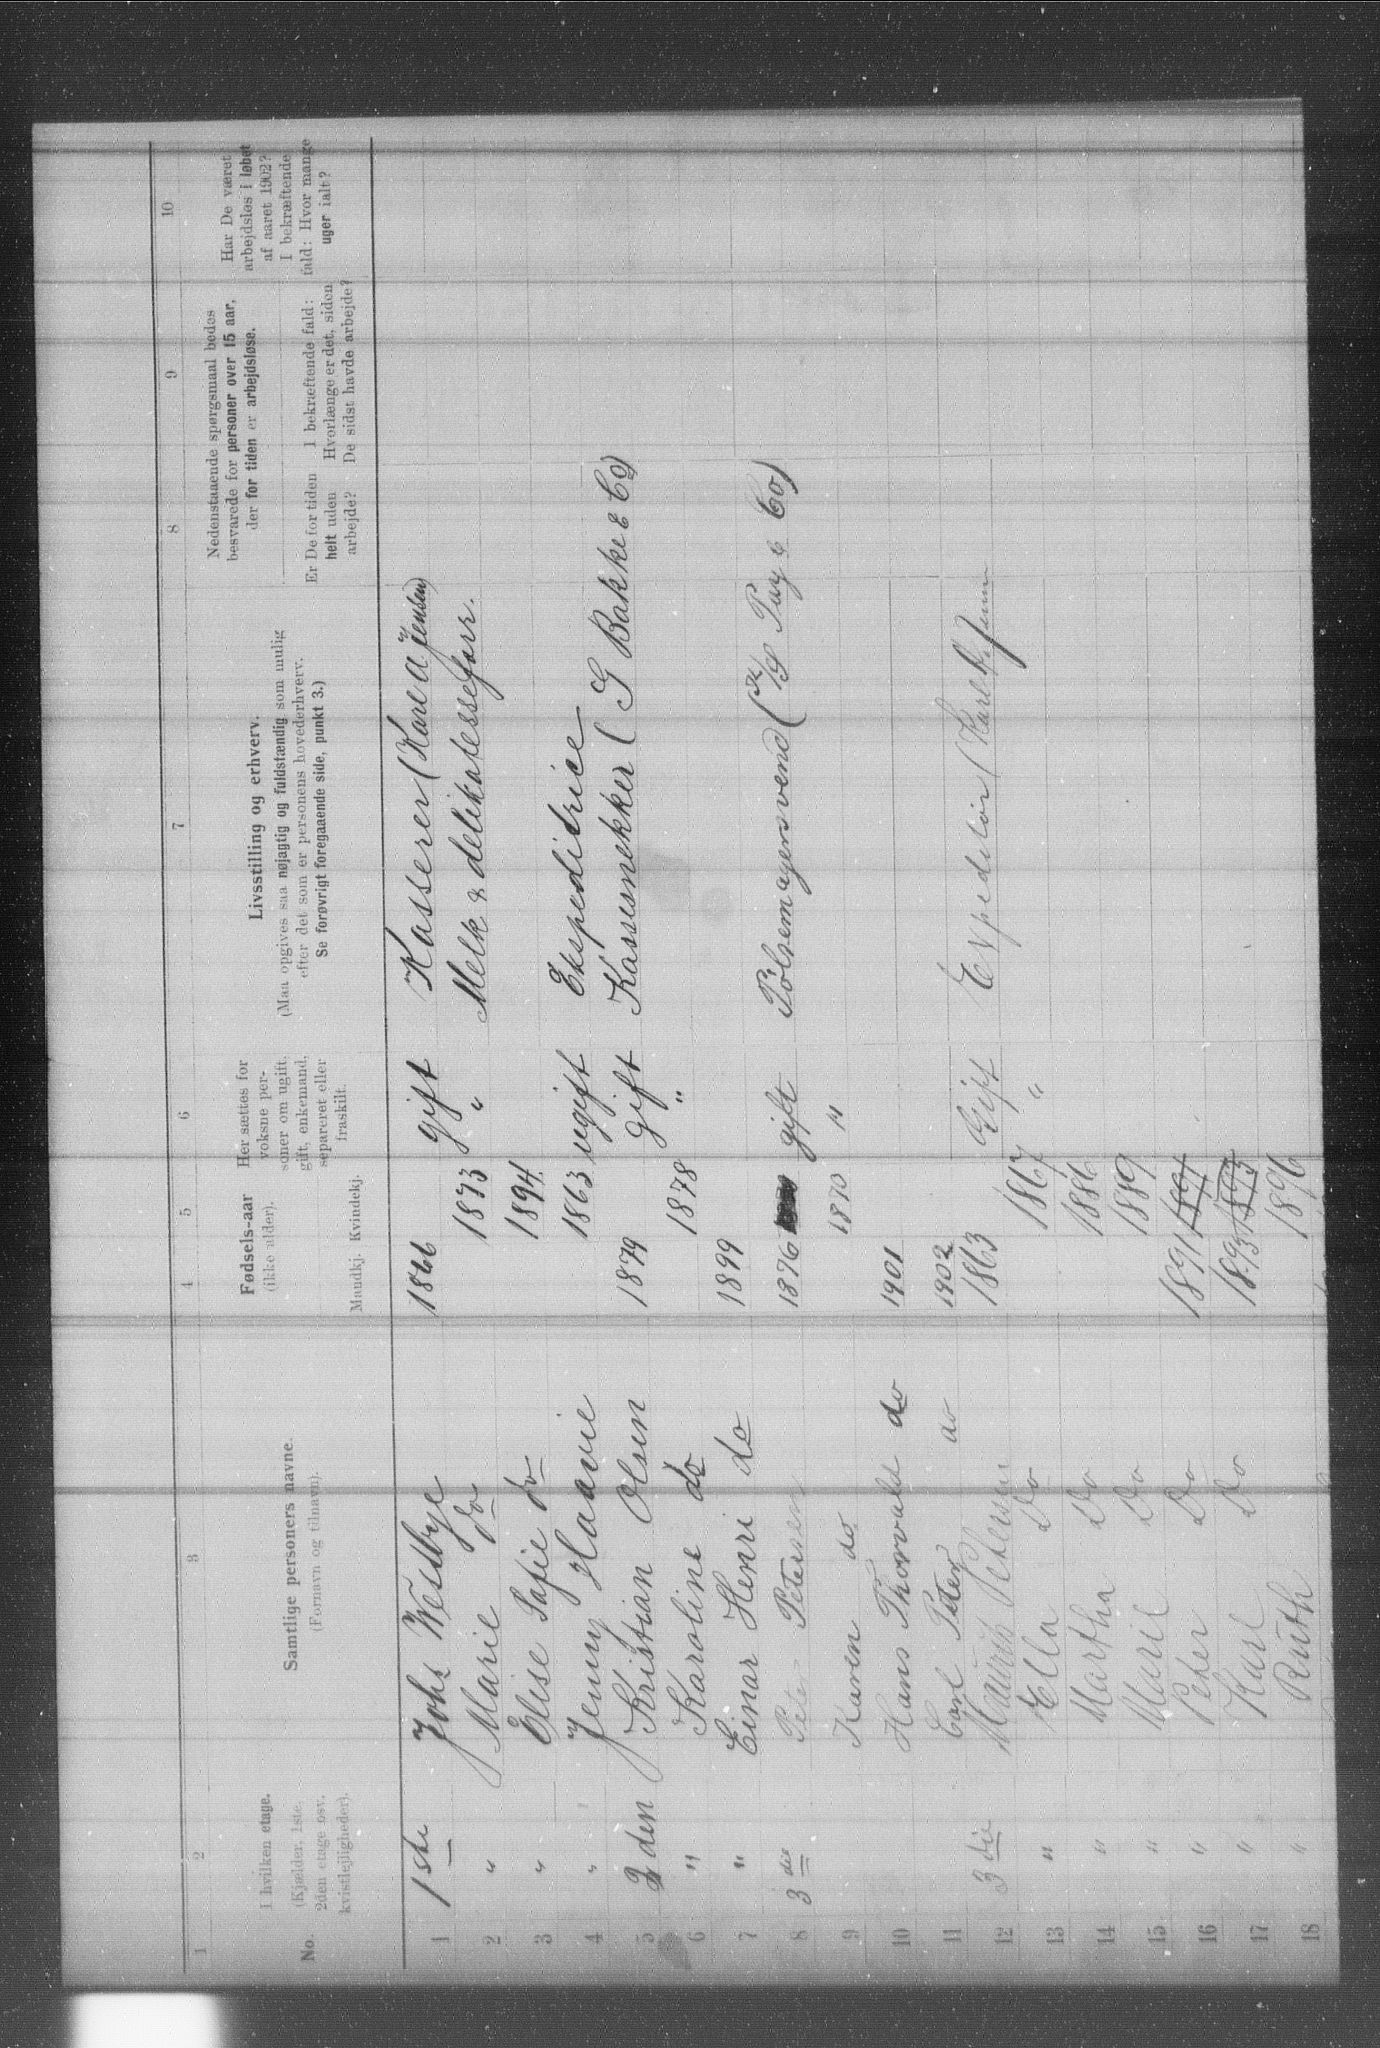 1 2 3 4 5 6 7 8 9 10
No.
I hvilken etage.
(Kjælder, 1ste,
2den etage osv.
kvistlejligheder).
Samtlige personers navne.
(Fornavn og tilnavn).
Fødsels-aar
(ikke alder).
Mandkj. Kvindekj.
Her sættes for
voksne per-
soner om ugift,
gift, enkemand,
separeret eller
fraskilt.
Livsstilling og erhverv.
(Maa opgives saa nøjagtig og fuldstændig som mulig
efter det som er personens hovederhverv.
Se forøvrigt foregaaende side, punkt 3.)
Nedenstaaende spørgsmaal bedes
besvarede for personer over 15 aar,
der for tiden er arbejdsløse.
Er De for tiden
helt uden
arbejde?
I bekræftende fald:
Hvorlænge er det, siden
De sidst havde arbejde?
Har De været
arbejdsløs i løbet
af aaret 1902?
I bekræftende
fald: Hvor mange
uger ialt?
1 1ste Johs Westbye 1866 gift Kasserer (Kare A Jensen)
2 " Marie do 1873 " Melk & delikatesseforr.
3 " Elise Sofie do 1894
4 " Jenny Haavie 1863 ugift Ekspeditrice
5 2den Kristian Olsen 1879 gift Kassesnekker ( G Bakke & Co)
6 " Karoline do 1878 "
7 " Einar Henri do 1899
8 3die Peter Petersen 1876 gift Pølsemagersvend ( & Co)
9 Karen do 1870 "
10 Hans Thorvald do 1901
11 Carl Peter do 1902
12 3die Petersen 1863 Gift Expeditør (Karl
13 " Ella Do 1867 "
14 " Martha Do 1886
15 " Marie Do 1889
16 " Peter Do 1891 1891
17 " Karl Do 1893 1893
18 " Ruth 1896